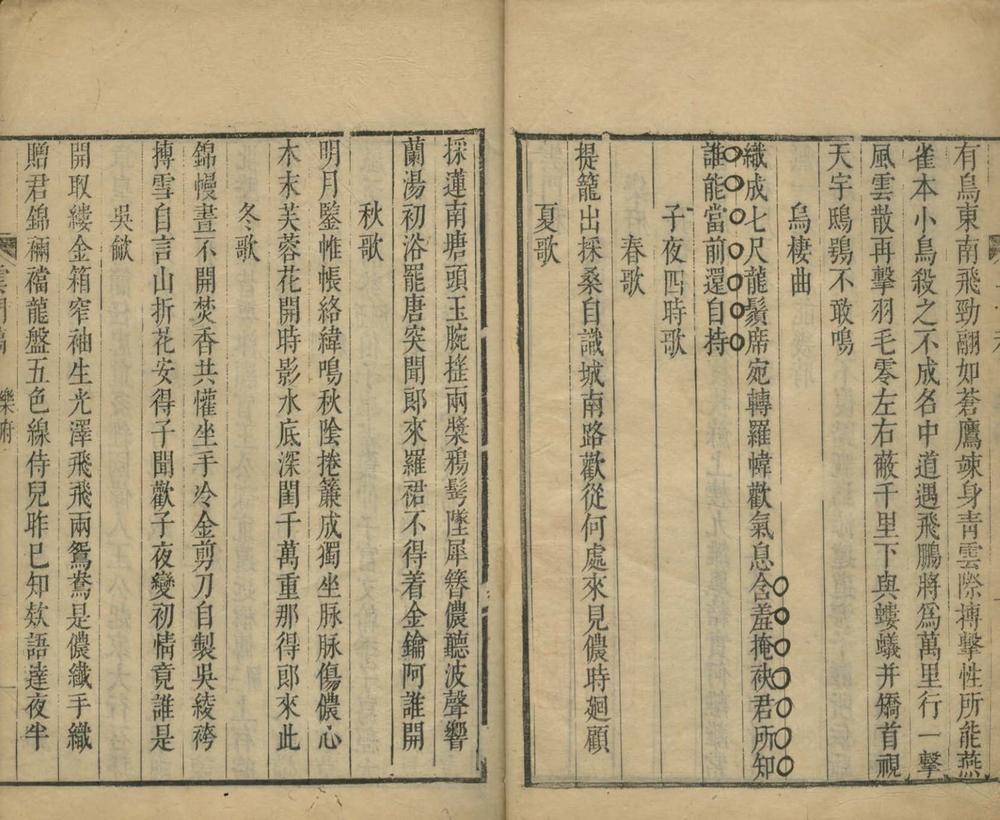 有鳥東南飛勁翮如蒼鷹竦身青雲際搏擊性所能燕
雀本小鳥殺之不成名中道遇飛鵬將爲萬里行一擊
風雲散再擊羽毛零左右蔽千里下與螻蟻并矯首視
天宇鴟鴞不敢鳴
烏棲曲
織成七尺龍鬚席宛轉羅幃歡氣息含羞掩袂君所知
誰能當前還自持
子夜四時歌
春歌
提籠出採桑自識城南路歡從何處來見儂時廻顧
夏歌
採蓮南塘頭玉腕搖兩槳鵶髩墜犀簪儂聽波聲響
蘭湯初浴罷唐突聞郎來羅裙不得着金鑰阿誰開
秋歌
明月鑒帷帳絡緯鳴秋陰捲簾成獨坐脉脉傷儂心
木末芙蓉花開時影水底深閨千萬重那得郎來此
冬歌
錦幔晝不開焚香共懽坐手冷金剪刀自製吳綾袴
摶雪自言山折花安得子聞歡子夜變初情竟誰是
吳歈
開取縷金箱窄袖生光澤飛飛兩鴛鴦是儂纖手織
贈君錦裲襠龍盤五色線侍兒昨已知欬語達夜半
樂府